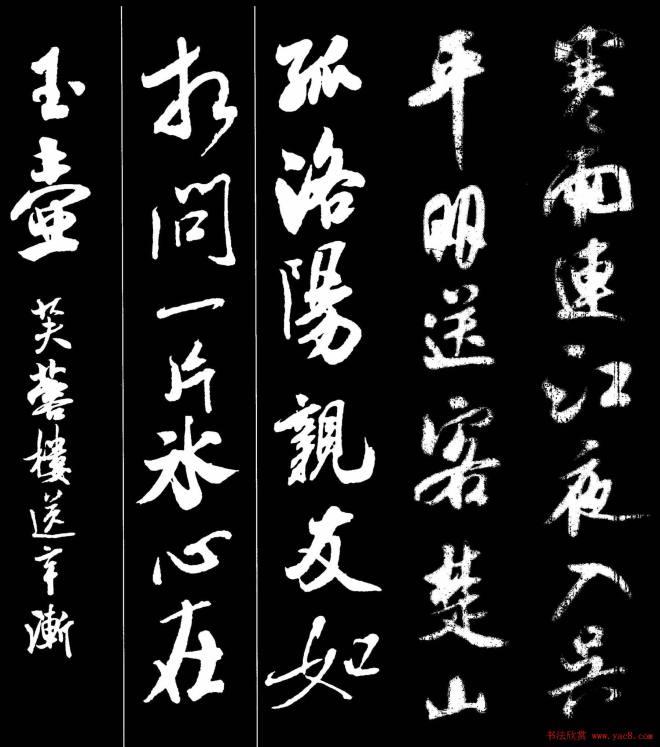 寒雨連江夜入吳
平明送客楚山
孤洛陽親友如
相問一片冰心在
玉壺
芙蓉樓送辛漸
书法欣赏 www.yac8.com